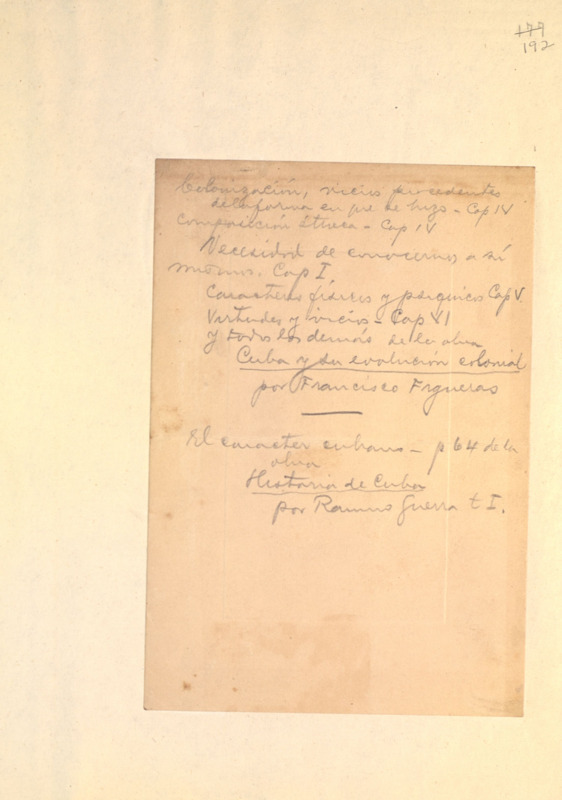 177
192
Colonización, vicios procedentes
de la forma en que se hizo - Cap IV
Composición étnica - Cap IV
Necesidad de conocernos a sí
mismos. Cap I
Caracteres físicos y psíquicos Cap V.
Virtudes y vicios - Cap VI
y todos los demás de la obra
Cuba y su evolución colonial
por Francisco Figueras
El caracter cubano - p 64 de la
obra
Historia de Cuba
por Ramiro Guerra t I.